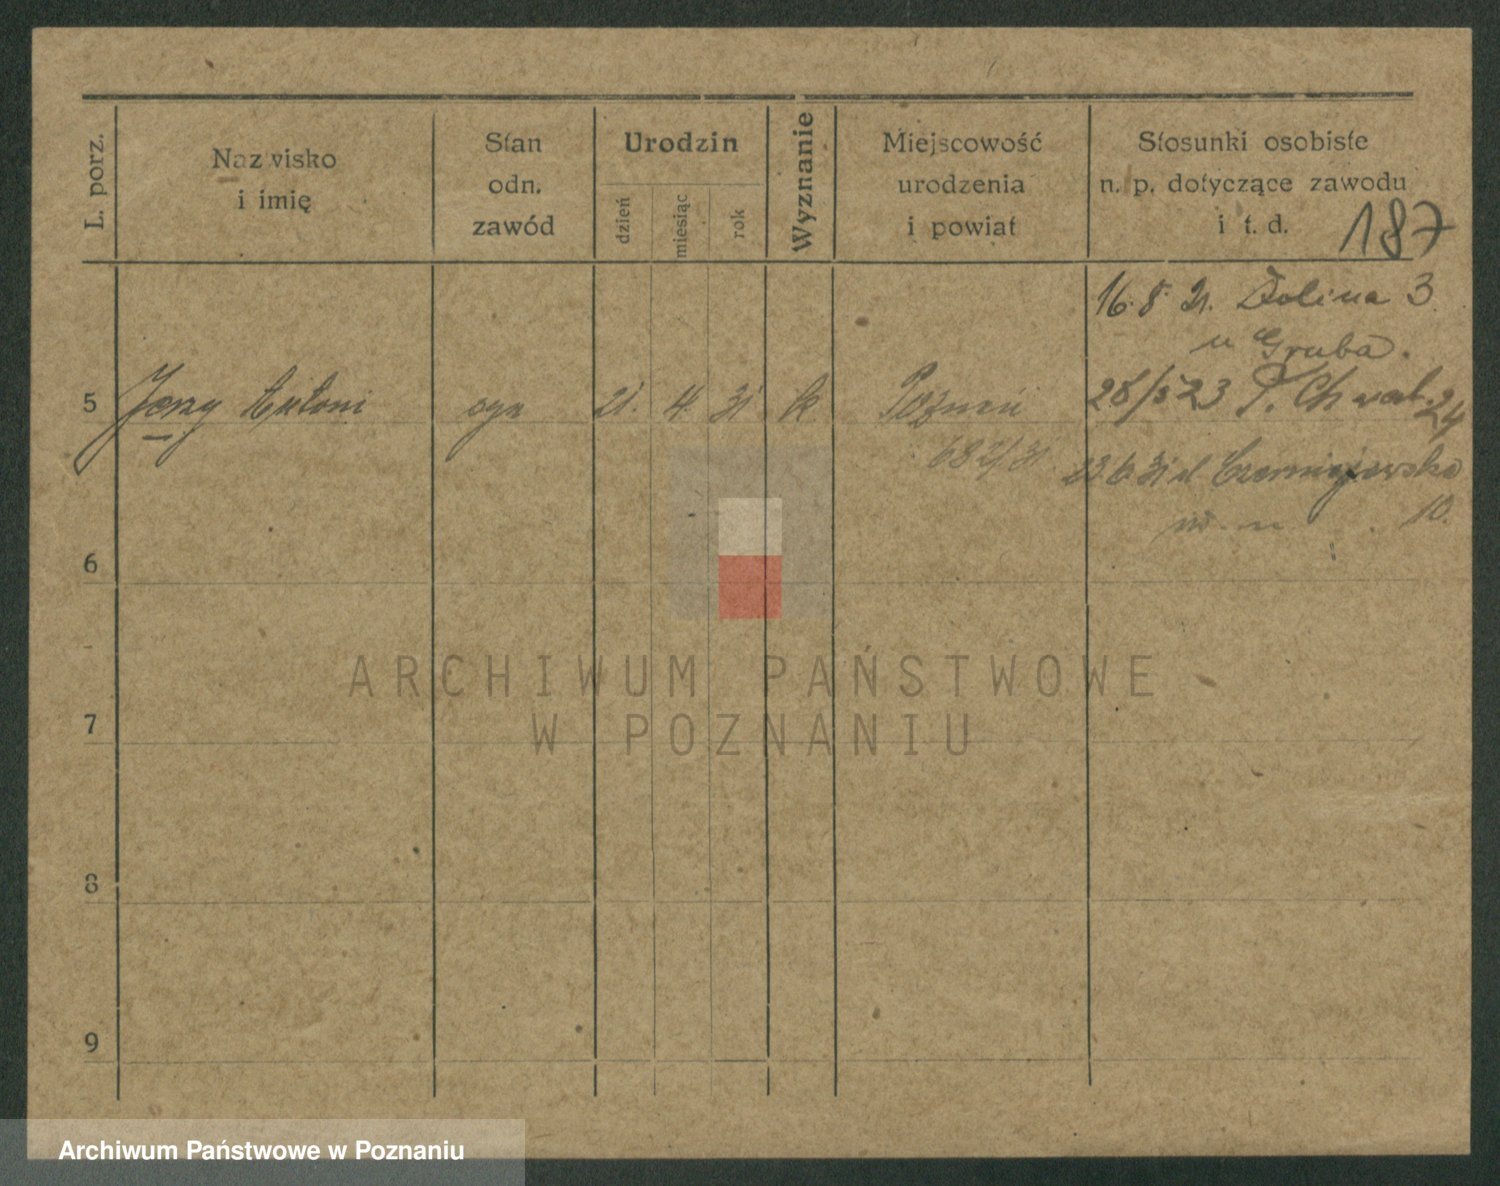 L. porz.
Nazwisko
i imię
Stan
odn.
zawód
Urodzin
dzień
miesiąc
rok
Wyznanie
Miejscowość
urodzenia
i powiat
Stosunki osobiste
n. p. dotyczące zawodu
i t. d.
187
16. 8. 21. Dolina 3.
u Gruba.
5 Jerzy Antoni syn 21. 4. 31. k Poznań
28/5 23 P. Chwał. 24
682/31
23.6.31 d Czerniejewska
10.
6
ARCHIWUM PAŃSTWOWE
W POZNANIU
7
8
9
Archiwum Państwowe w Poznaniu